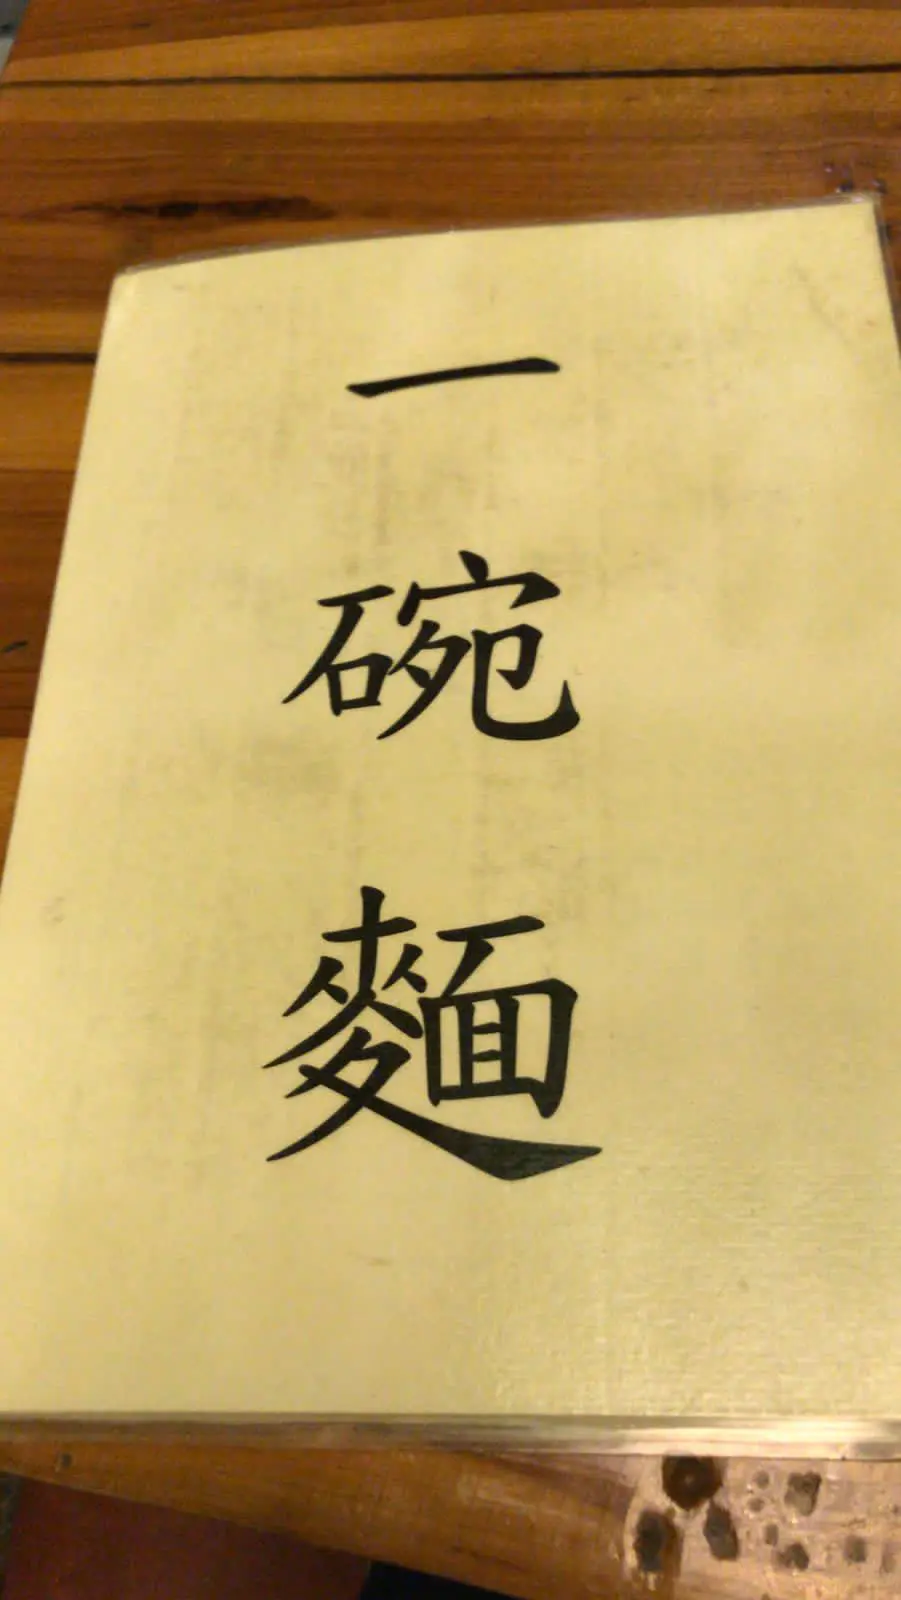 一碗麵